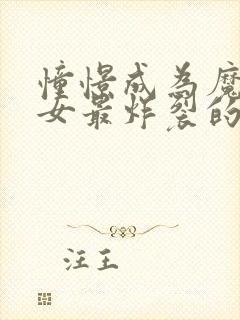 憧憬成为魔
女最炸裂的
汪王